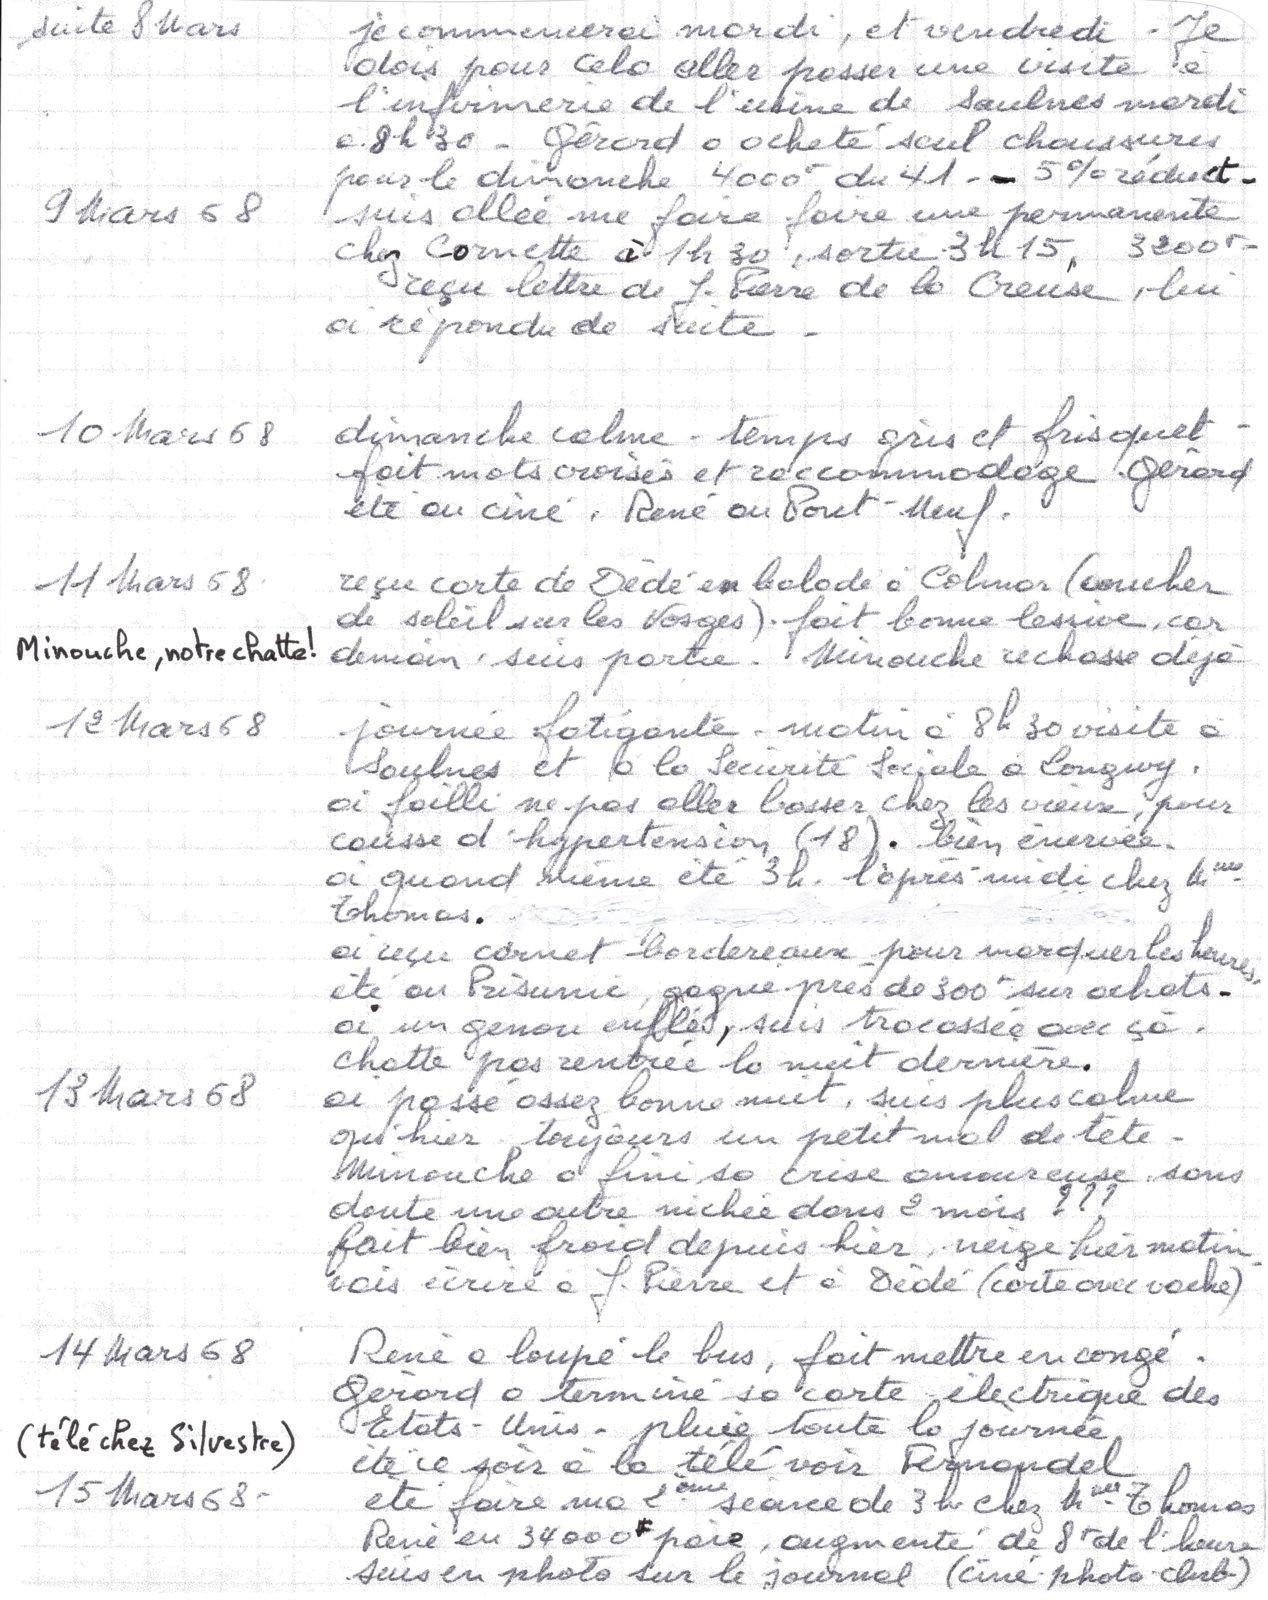 suite 8 Mars je commencerai mardi, et vendredi - Je
dois pour cela aller passer une visite à
l'infirmerie de l'usine de Saulnes mardi
a 8h30 - Gérard a acheté seul chaussures
pour le dimanche 4000F du 41 - - 5% réduct -
9 Mars 68 suis allée me faire faire une permanente
chez Cornette à 1h30, sortie 3h15, 3200F -
reçu lettre de J. Pierre de la Creuse, lui
ai répondu de suite -
10 Mars 68 dimanche calme - temps gris et frisquet -
fait mots croisés et raccommodage Gérard
été au ciné. René au Pont-Neuf.
11 Mars 68 reçu carte de Dédé en balade à Colmar (coucher
de soleil sur les Vosges). fait bonne lessive, car
Minouche, notre chatte! demain, suis partie. Minouche rechasse déjà
12 Mars 68 journée fatigante - matin à 8h30 visite à
Saulnes et à la Sécurité Sociale à Longwy.
ai failli ne pas aller bosser chez les vieux, pour
causse d'hypertension (18). bien énervée.
ai quand même été 3h. l'après-midi chez Mme
Thomas.
ai reçu carnet bordereaux pour marquer les heures.
été au Prisunic, gagné près de 300F sur achats.
ai un genou enflé, suis tracassée avec çà.
chatte pas rentrée la nuit dernière.
13 Mars 68 ai passé assez bonne nuit, suis plus calme
qu'hier toujours un petit mal de tête -
Minouche a fini sa crise amoureuse sans
doute une autre nichée dans 2 mois ???
fait bien froid depuis hier, neige hier matin
vais écrire à J. Pierre et à Dédé (carte avec vache)
14 Mars 68 René a loupé le bus, fait mettre en congé.
Gérard a terminé sa carte électrique des
Etats-Unis - pluie toute la journée
(télé chez Silvestre) été ce soir à la télé voir Fernandel
15 Mars 68 - été faire ma 2ème séance de 3h chez Mme Thomas
René eu 34000F paie, augmenté de 8F de l'heure
suis en photo sur le journal (ciné-photo-club)